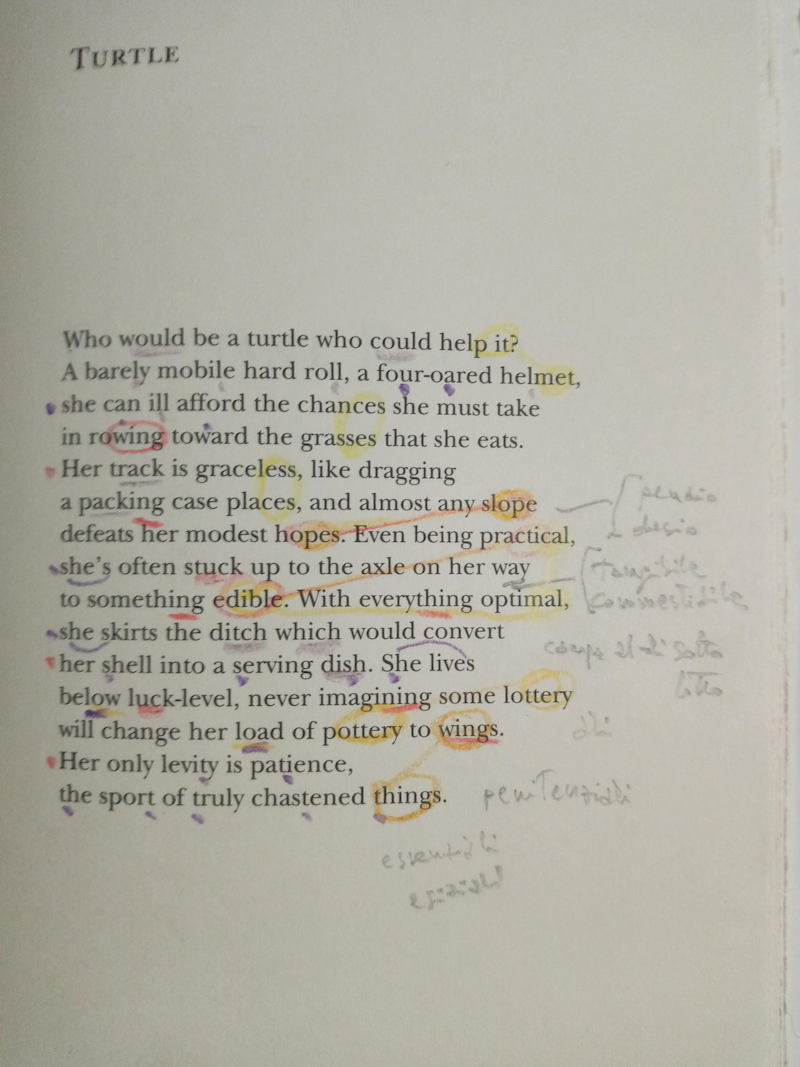 TURTLE
Who would be a turtle who could help it?
A barely mobile hard roll, a four-oared helmet,
she can ill afford the chances she must take
in rowing toward the grasses that she eats.
Her track is graceless, like dragging
a packing case places, and almost any slope
defeats her modest hopes. Even being practical,
she's often stuck up to the axle on her way
to something edible. With everything optimal,
she skirts the ditch which would convert
her shell into a serving dish. She lives
below luck-level, never imagining some lottery
will change her load of pottery to wings.
Her only levity is patience,
the sport of truly chastened things.
pendio
tangibile
commestibile
al di sotto
lotto
ali
penitenziali
essenziali